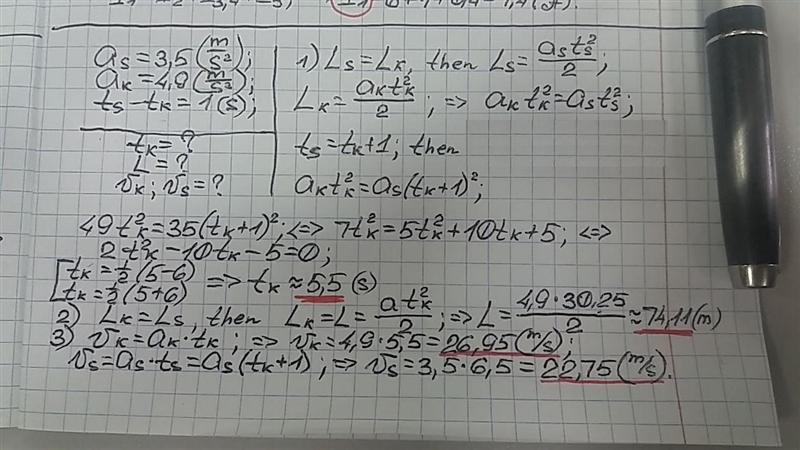 aₛ=3,5(m/s²);
aₖ=4,9(m/s²);
tₛ-tₖ=1(s);
tₖ=?
L=?
vₖ; vₛ=?
1) Lₛ=Lₖ, then Lₛ=aₛtₛ²/2;
Lₖ=aₖtₖ²/2; => aₖtₖ²=aₛtₛ²;
tₛ=tₖ+1; then
aₖtₖ²=aₛ(tₖ+1)²;
49tₖ²=35(tₖ+1)²; <=> 7tₖ²=5tₖ²+10tₖ+5; <=>
2tₖ²-10tₖ-5=0;
[tₖ=½(5-6)
[tₖ=½(5+6) => tₖ≈5,5(s)
2) Lₖ=Lₛ, then Lₖ=L=atₖ²/2; => L=4,9·30,25/2≈74,11(m)
3) vₖ=aₖ·tₖ; => vₖ=4,9·5,5=26,95(m/s);
vₛ=aₛ·tₛ=aₛ(tₖ+1); => vₛ=3,5·6,5=22,75(m/s).